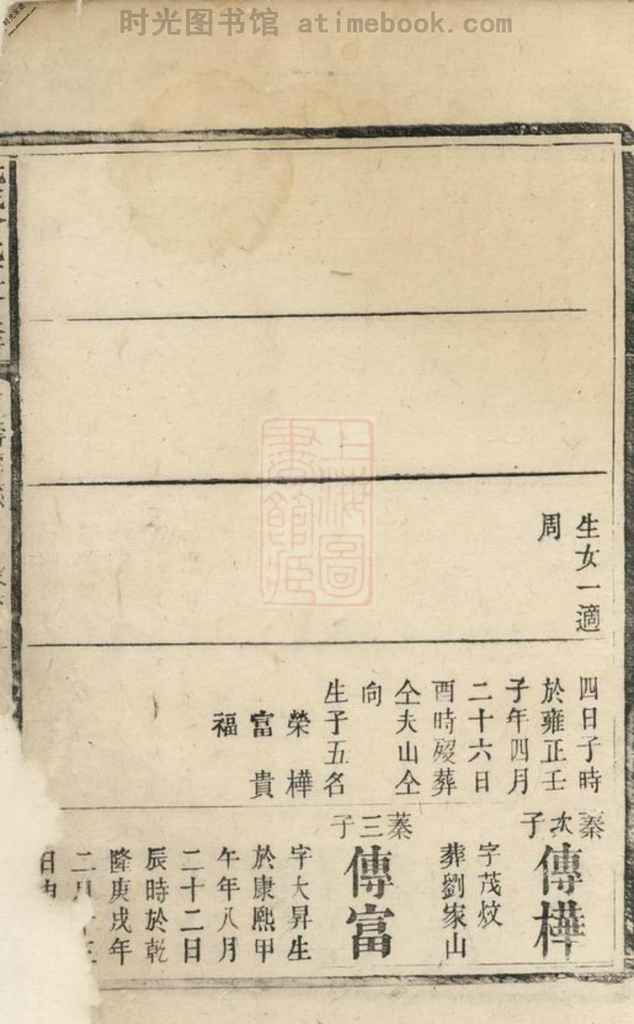 时光图书馆 atimebook.com
生女一適
周
四日子時
於雍正壬
子年四月
二十六日
酉時歿葬
仝夫山仝
向
生子五名
榮樺
富貴
福
蓁次子
傳樺
字茂炆
葬劉家山
蓁三子
傳富
字大昇生
於康熙甲
午年八月
二十二日
辰時於乾
隆庚戌年
二月十三
上海圖
書館藏